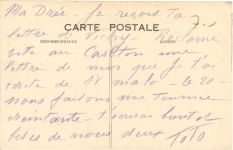 Ma Drée - Je reçois ta
CARTE POSTALE
lettre de Vitry. Réclame
CORRESPONDANCE
vite au Carlton une
lettre de moi que je t'ai
écrite de St malo - le 20 -
nous faisons une tournée
éreintante - à bientôt
de nous deux Toto